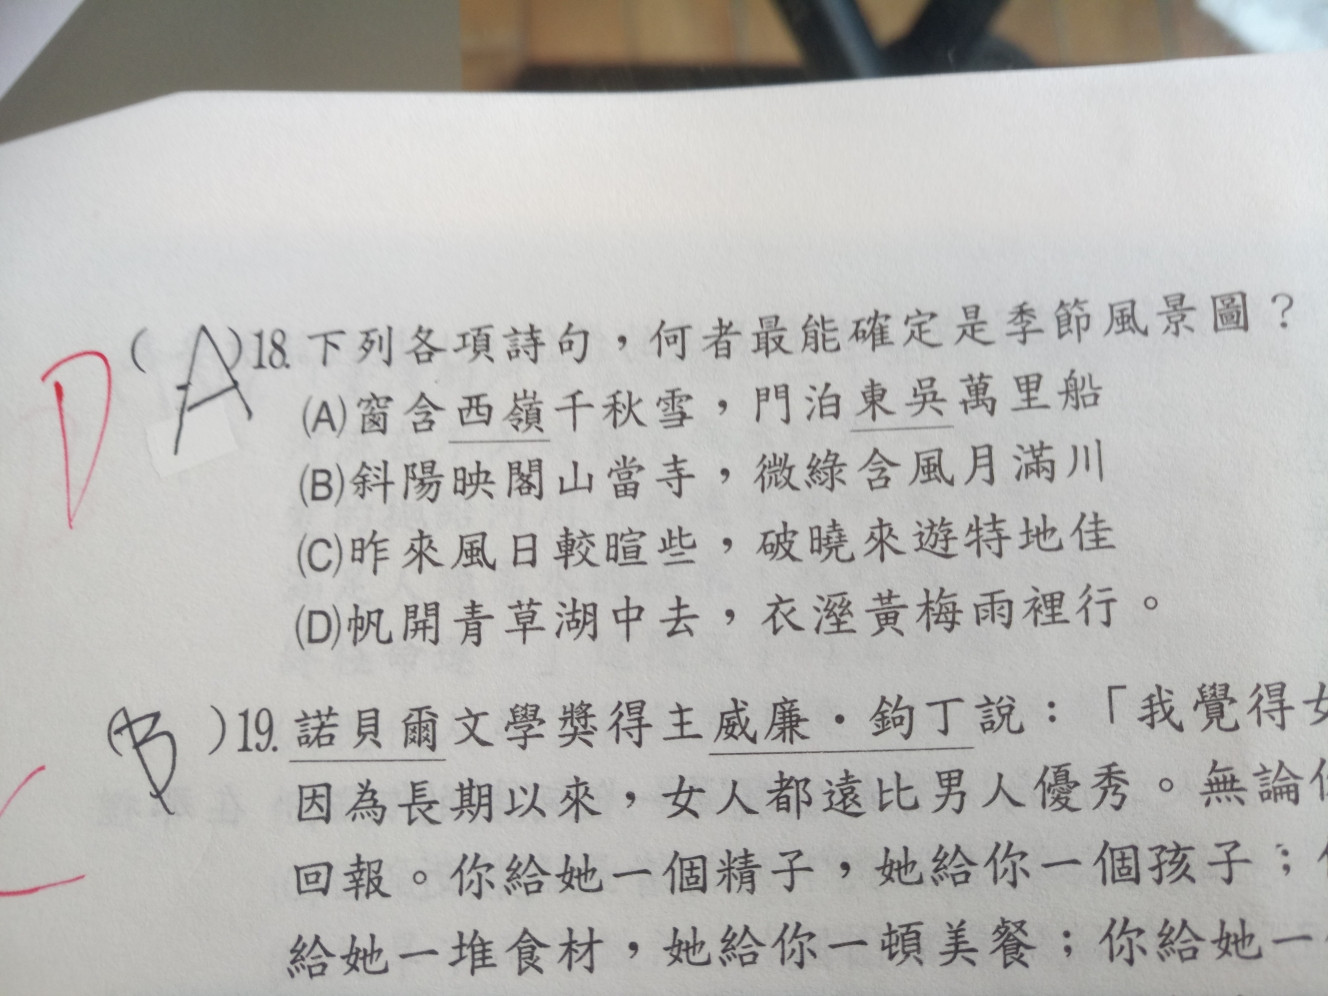 D ( A )18.下列各項詩句，何者最能確定是季節風景圖？
(A)窗含西嶺千秋雪，門泊東吳萬里船
(B)斜陽映閣山當寺，微綠含風月滿川
(C)昨來風日較暄些，破曉來遊特地佳
(D)帆開青草湖中去，衣溼黃梅雨裡行。
(B )19.諾貝爾文學獎得主威廉·鉤丁說：「我覺得女
因為長期以來，女人都遠比男人優秀。無論你
回報。你給她一個精子，她給你一個孩子；
給她一堆食材，她給你一頓美餐；你給她一